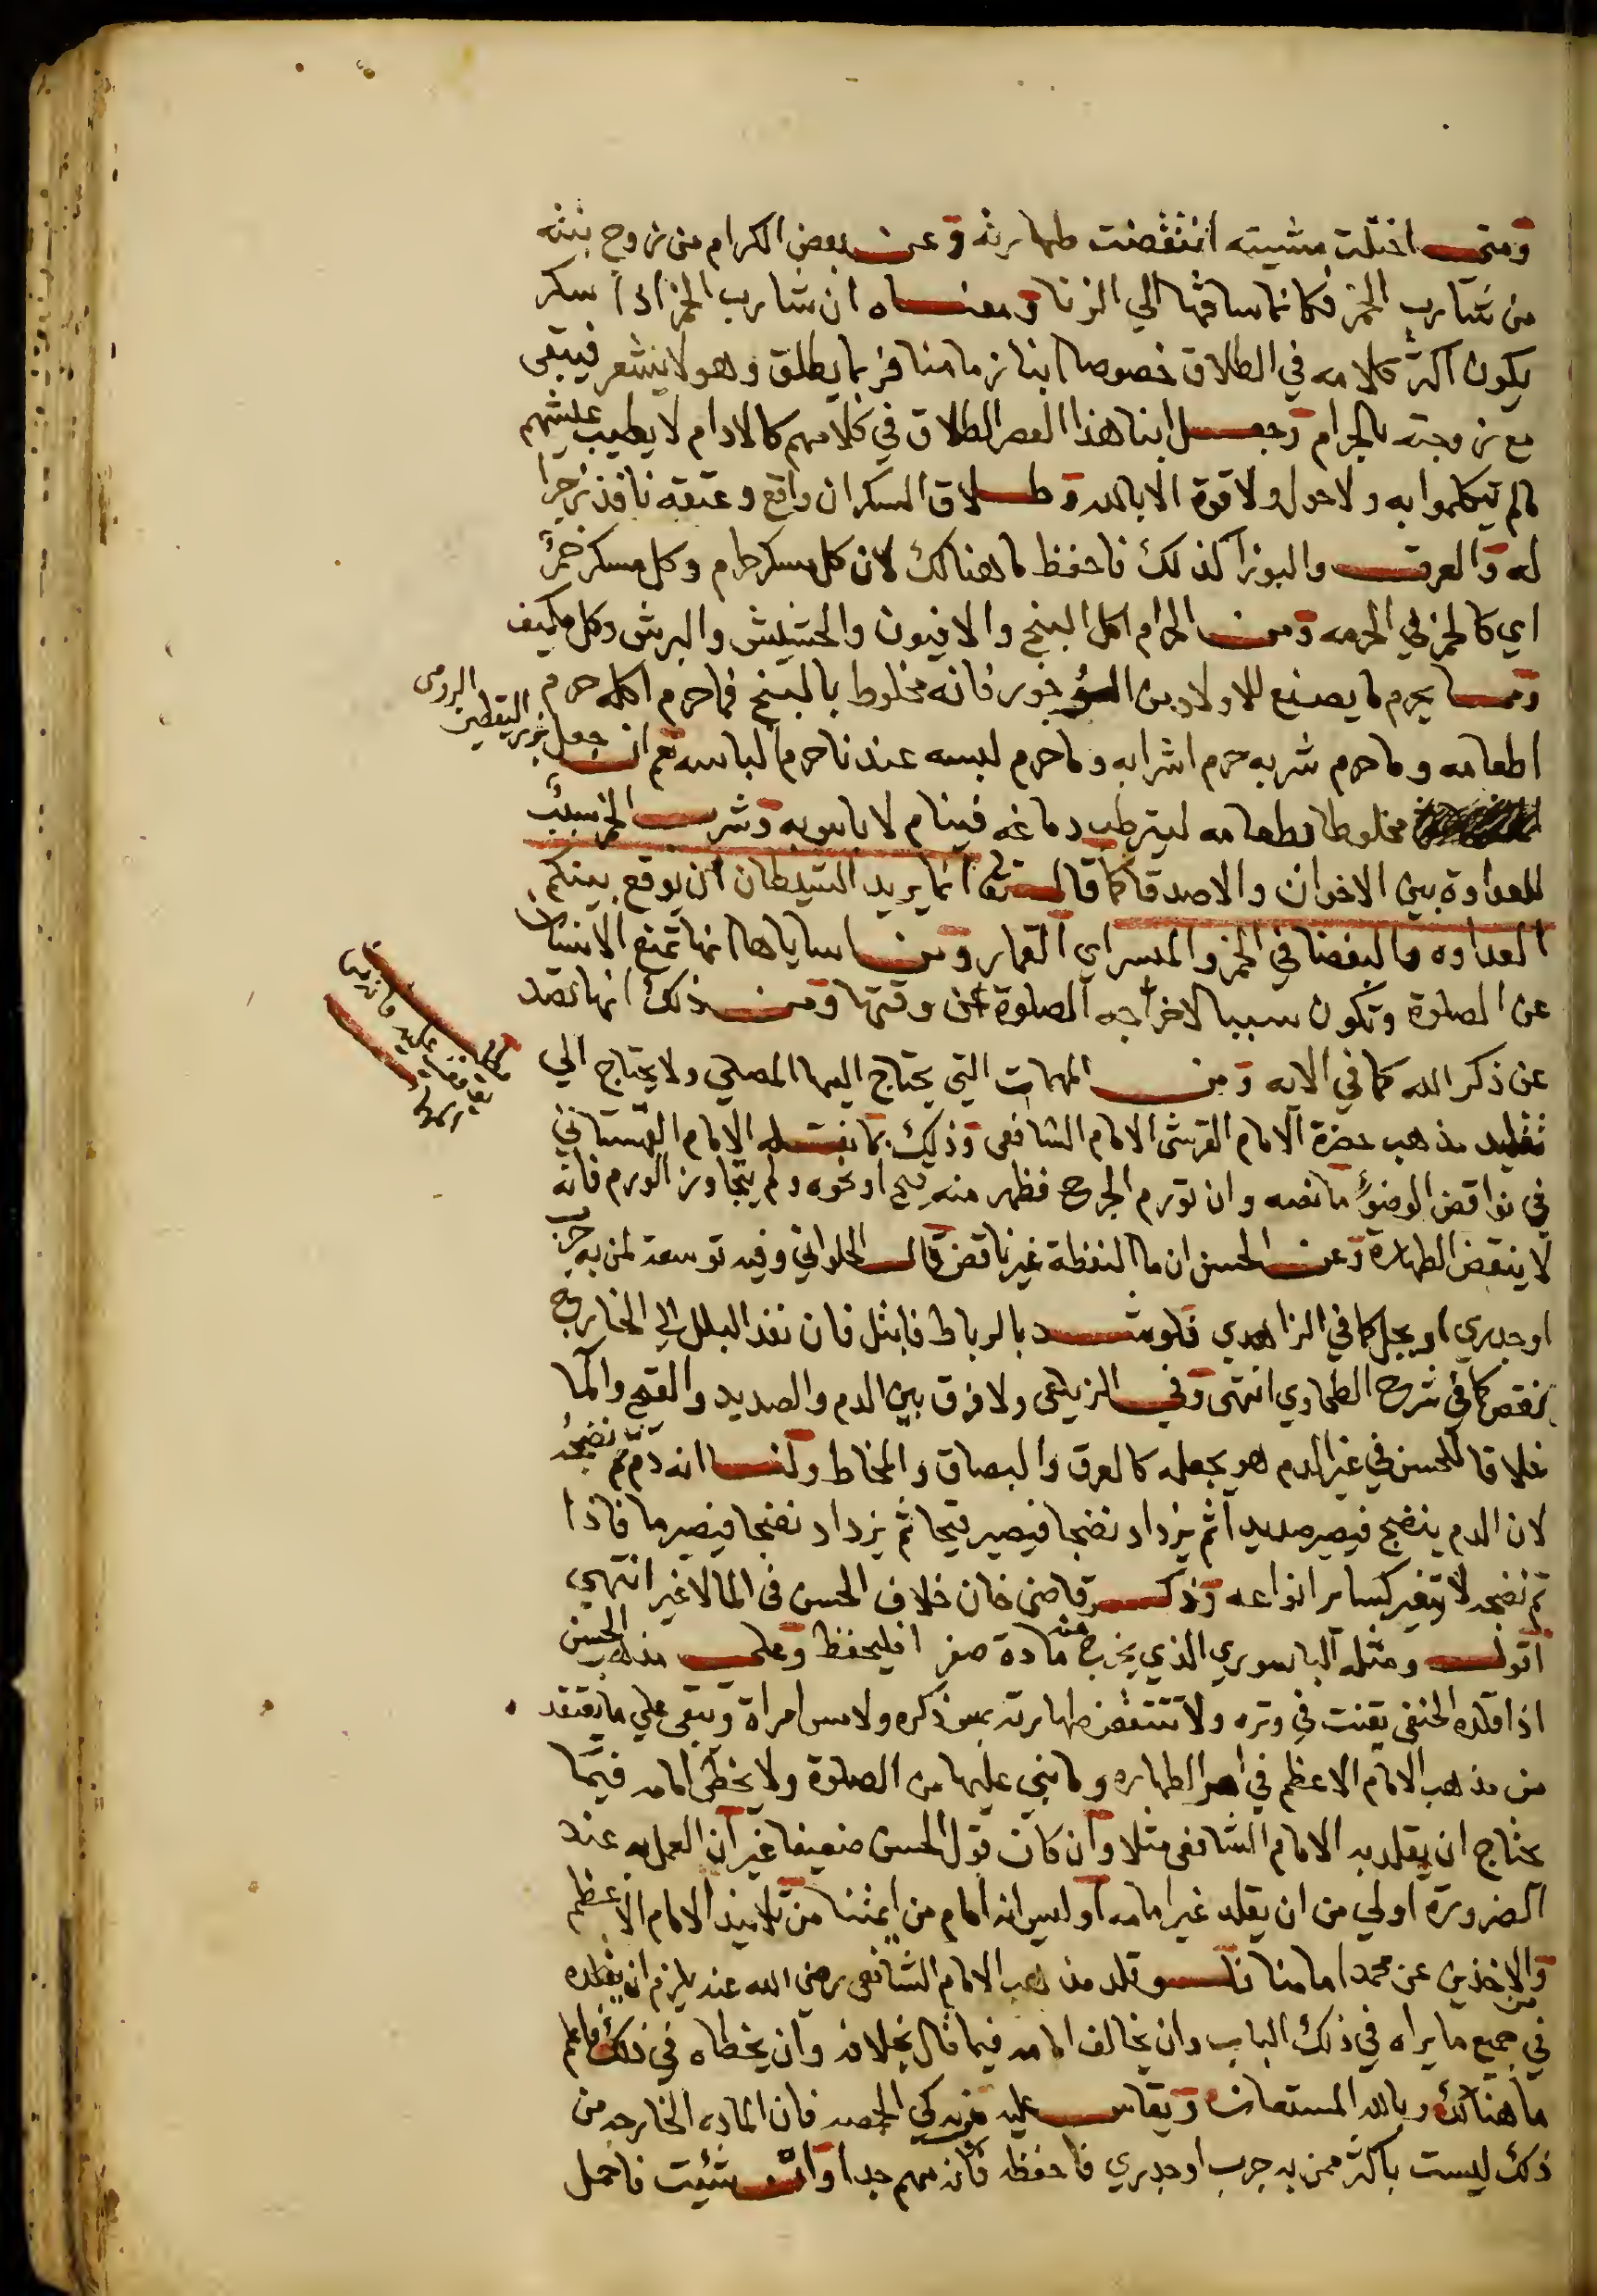 ومتى اختلت مشيته انتقضت طهارته وعن بعض الكرام من زوج بنته
من شارب الخمر فكانما ساقها الي الزنا ومعناه ان شارب الخمر اذا سكر
يكون اكثر كلامه في الطلاق خصوصا ابنا زماننا فربما يطلق وهو لا يشعر فيبقى
مع زوجته بالحرام وجعل ابنا هذا العصر الطلاق في كلامهم كالادام لا يطيب عيشهم
مالم يتكلموا به ولا حول ولا قوة الا بالله وطلاق السكران واقع وعتقه نافذ زجرا
له والعرق والبوزا كذلك فاحفظ ما هنالك لان كل مسكر حرام وكل مسكر خمر
اي كالخمر في الحرمه ومن الحرام اكل البنج والافيون والحشيش والبرش وكل مكيف
ومما يحرم ما يصنع للاولاد من فانه مخلوط بالبنج فما حرم اكله حرم
اطعامه وما حرم شربه حرم اشرابه وما حرم لبسه عندنا حرم الباسه نعم ان جعل بزر اليقطين الرومي
مخلوطا بطعامه ليترطب دماغه فينام لا باس به وشرب الخمر سبب
للعداوة بين الاخوان والاصدقا كما قال تعالى انما يريد الشيطان ان يوقع بينكم
العداوه والبغضا في الخمر والميسر اي القمار ومن اساياها انها تمنع الانسان
عن الصلوة وتكون سببا لاخراجه الصلوة عن وقتها ومن ذلك انها تصد
عن ذكر الله كما في الايه ومن المهمات التي يحتاج اليها المصلي ولا يحتاج الي
تقليد مذهب حضرة الامام القرشي الامام الشافعي وذلك بما نقله الامام القهستاني
في نواقض الوضوء ما نصه وان تورم الجرح فظهر منه قيح او نحوه ولم يتجاوز الورم فانه
لا ينقض الطهارة وعن الحسن ان ما النفطة غير ناقض قال الحلواني وفيه توسعة لمن به جرب
او جدري او مجل كما في الزاهدي فلو شد بالرباط فابتل فان نفذ البلل الي الخارج
نقض كما في شرح الطحاوي انتهى وفي الزيلعي ولا فرق بين الدم والصديد والقيح والما
خلافا للحسن في غير الدم هو يجعله كالعرق والبصاق والمخاط ولنا انه دم تم نضجه
لان الدم ينضج فيصير صديدا ثم يزداد نضجا فيصير قيحا ثم يزداد نضجا فيصير ما فاذا
تم نضجه لا يتغير كساير انواعه وذكر قاضي خان خلاف الحسن في الما لا غير انتهي
اقول ومثله الباسوري الذي يخرج منه مادة صفرا فليحفظ وعلى مذهب الحسن
اذا قلده الحنفي يقنت في وتره ولا تنتقض طهارته بمس ذكره ولا مس امراة ويبقى علي ما يعتقد
من مذهب الامام الاعظم في امر الطهاره وما بني عليها من الصلوة ولا يخطئ امامه فيما
يحتاج ان يقلد به الامام الشافعي مثلا وان كان قول الحسن ضعيفا غير ان العمل به عند
الضرورة اولي من ان يقلد غير امامه او ليس انه امام من ايمتنا من تلاميذ الامام الاعظم
والاخذين عن محمد امامنا فلو قلد مذهب الامام الشافعي رضي الله عنه يلزم ان يقلده
في جميع ما يراه في ذلك الباب وان يخالف امامه فيما قال بخلافه وان يخطاه في ذلك فاعلم
ما هنالك وبالله المستعان ويقاس عليه كي الحمصه فان الماده الخارجه من
ذلك ليست باكثر ممن به جرب او جدري فاحفظه فانه مهم جدا وان شئت فاعمل